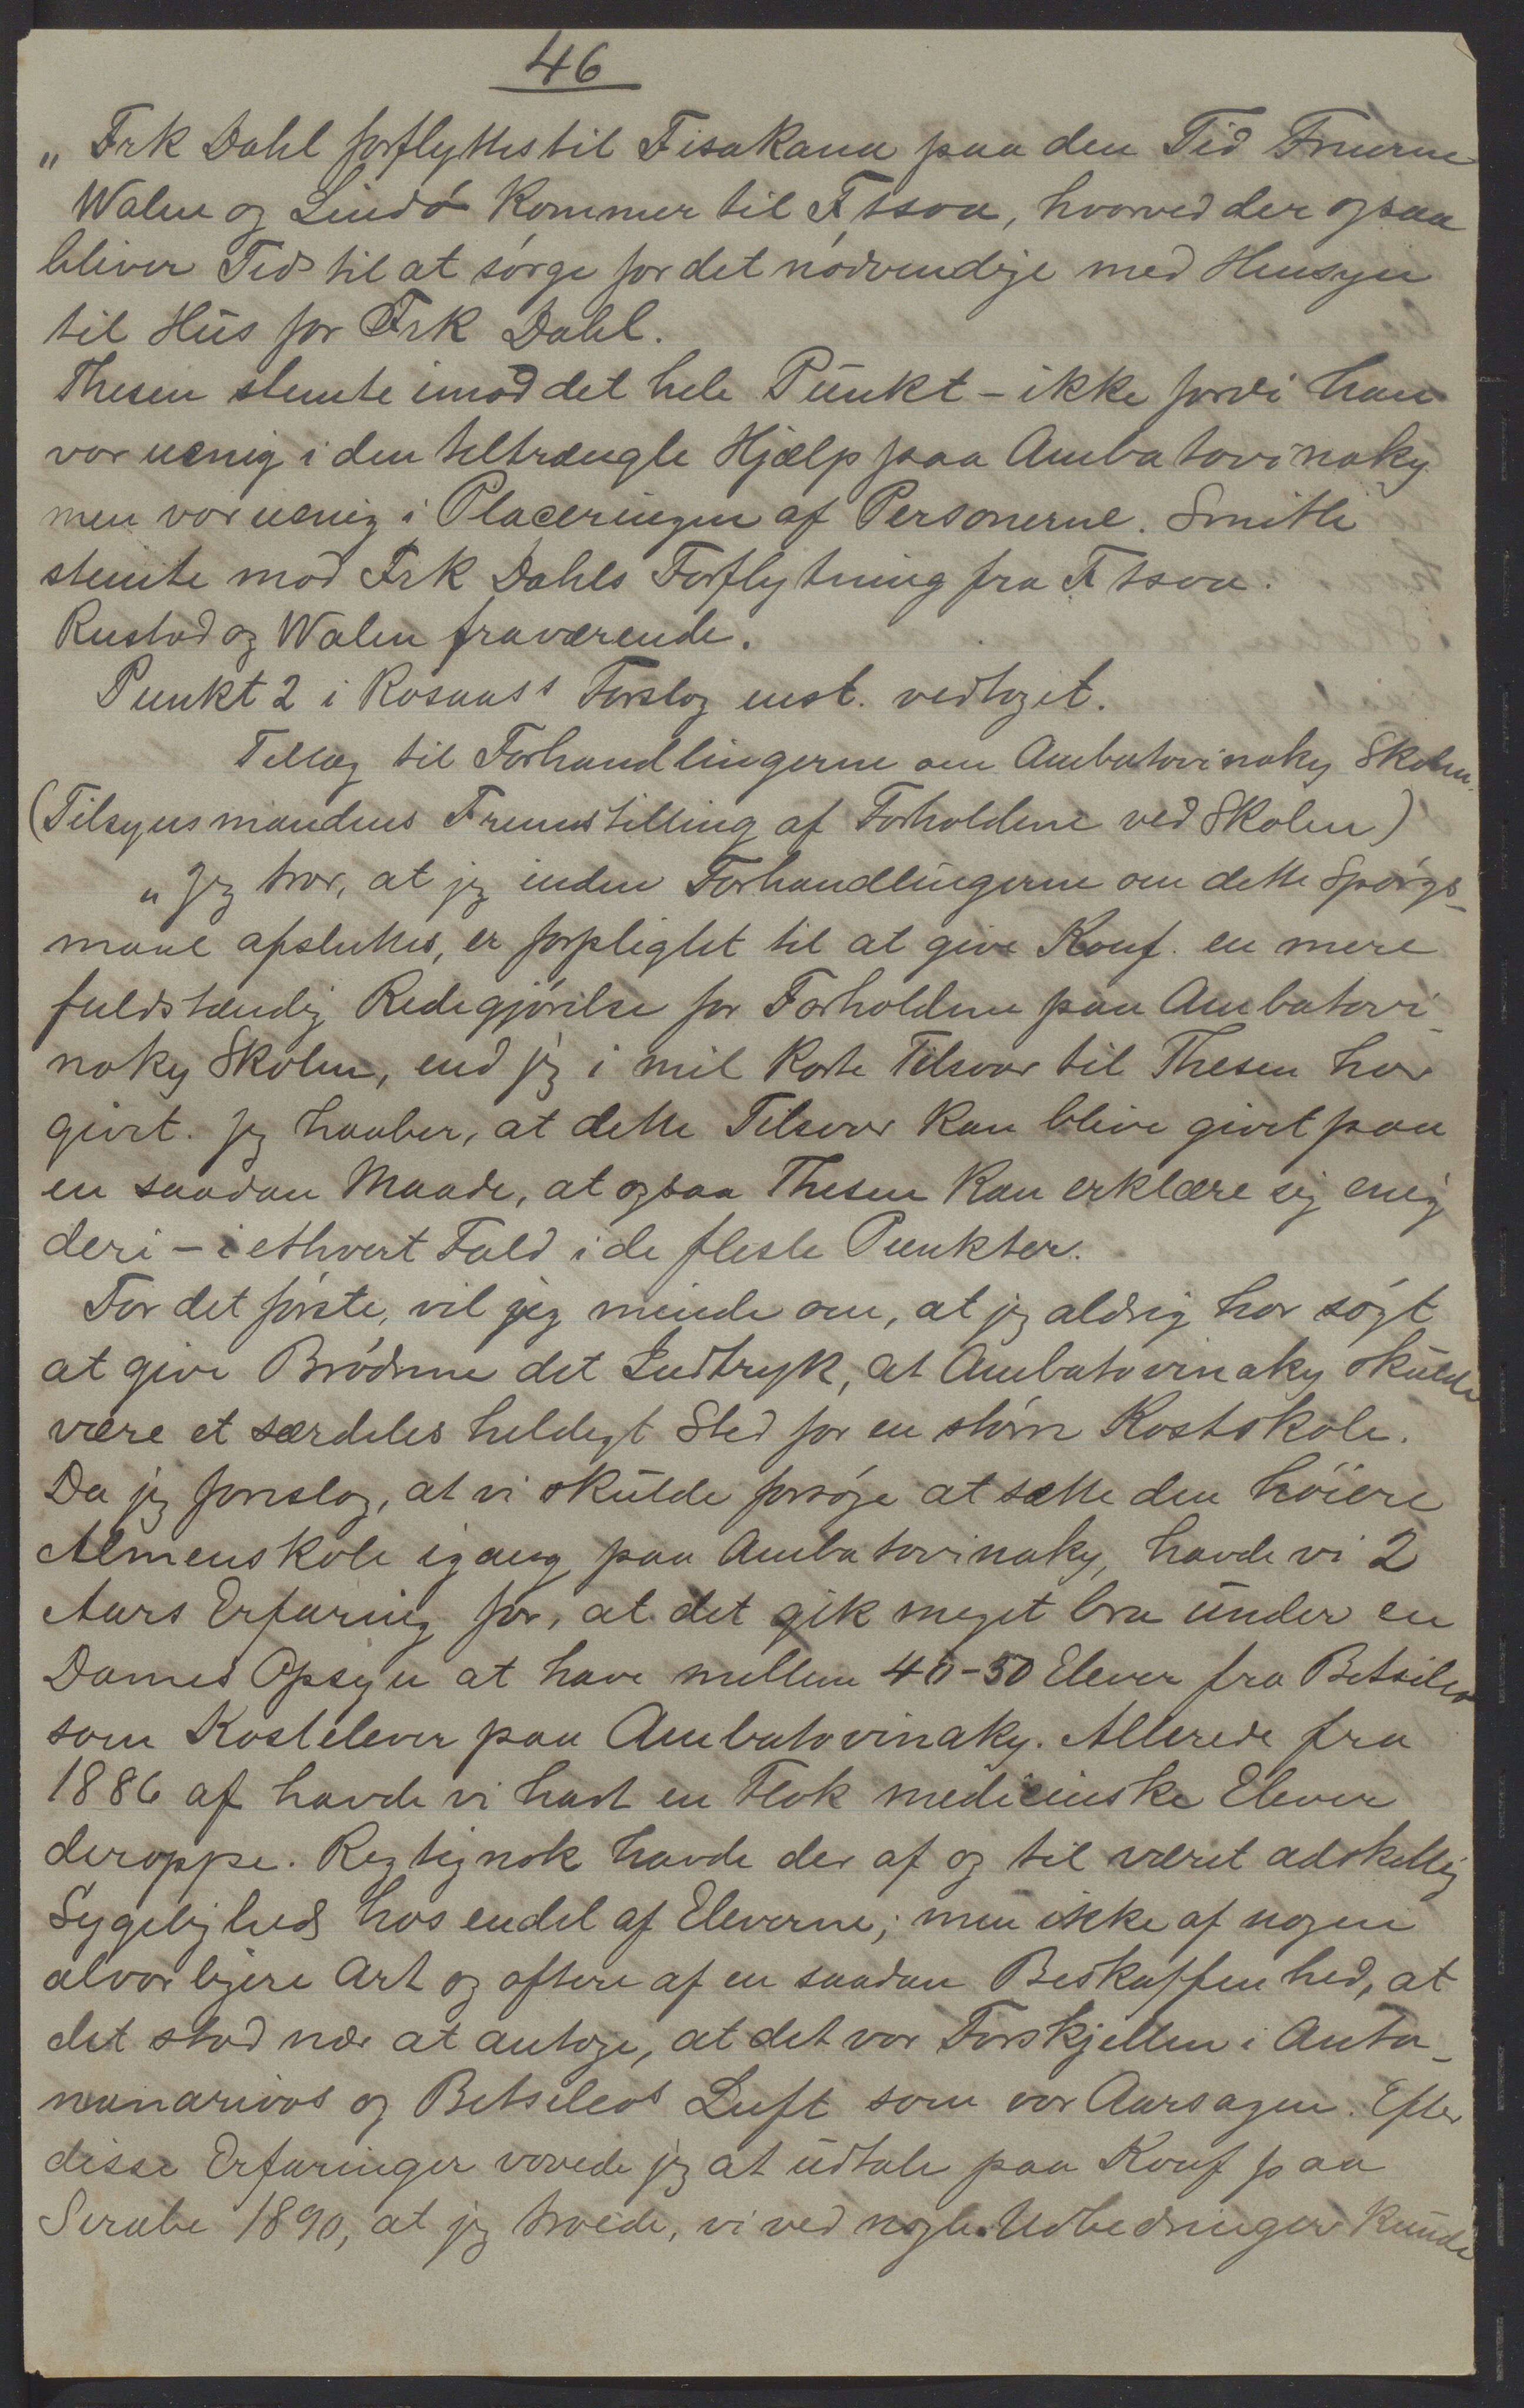 46
„ Frk Dahl forflyttes til Fisakana paa den Tid Fruerne
Walen og Lindø kommer til F,tsoa, hvorved der ogsaa
bliver Tid til at sørge for det nødvendige med Hensyn
til Hus for Frk Dahl.
Thesen stemte imod det hele Punkt – ikke fordi han
var uenig i den tiltrængte Hjælp paa Ambatovinaky
men var uenig i Placeringen af Personerne. Smith
stemte mod Frk Dahls Forflytning fra F,tsoa.
Rustad og Walen fraværende.
Punkt 2 i Rosaas's Forslag enst. vedtaget.
Tillæg til Forhandlingerne om Ambatovinaky Skolen.
(Tilsynsmandens Fremstilling af Forholdene ved Skolen)
„ Jeg tror, at jeg inden Forhandlingerne om dette Spørgs-
maal afsluttes, er forpligtet til at give Konf. en mere
fuldstændig Redegjørelse for Forholdene paa Ambatovi-
naky Skolen, end jeg i mit korte Tilsvar til Thesen har
givet. Jeg haaber, at dette Tilsvar kan blive givet paa
en saadan Maade, at ogsaa Thesen kan erklære sig enig
deri – i ethvert Fald i de fleste Punkter.
For det første, vil jeg minde om, at jeg aldrig har søgt
at give Brødrene det Indtryk, at Ambatovinaky skulde
være et særdeles heldigt Sted for en større Kostskole.
Da jeg foreslog, at vi skulde forsøge at sætte den høiere
Almenskole igang paa Ambatovinaky, havde vi 2
Aars Erfaring for, at det gik meget bra under en
Dames Opsyn at have mellem 40-50 Elever fra Betsileo
som Kostelever paa Ambatovinaky. Allerede fra
1886 af havde vi havt en Flok medicinske Elever
deroppe. Regtignok havde der af og til været adskellig
Sygelighed hos endel af Eleverne; men ikke af nogen
alvorligere Art og oftere af en saadan Beskaffenhed, at
det stod nær at antage, at det var Forskjellen i Anta-
nanarivos og Betsileos Luft som var Aarsagen. Efter
disse Erfaringer vovede jeg at udtale paa Konf paa
Sirabe 1890, at jeg troede, vi ved nogle Udbedringer kunde